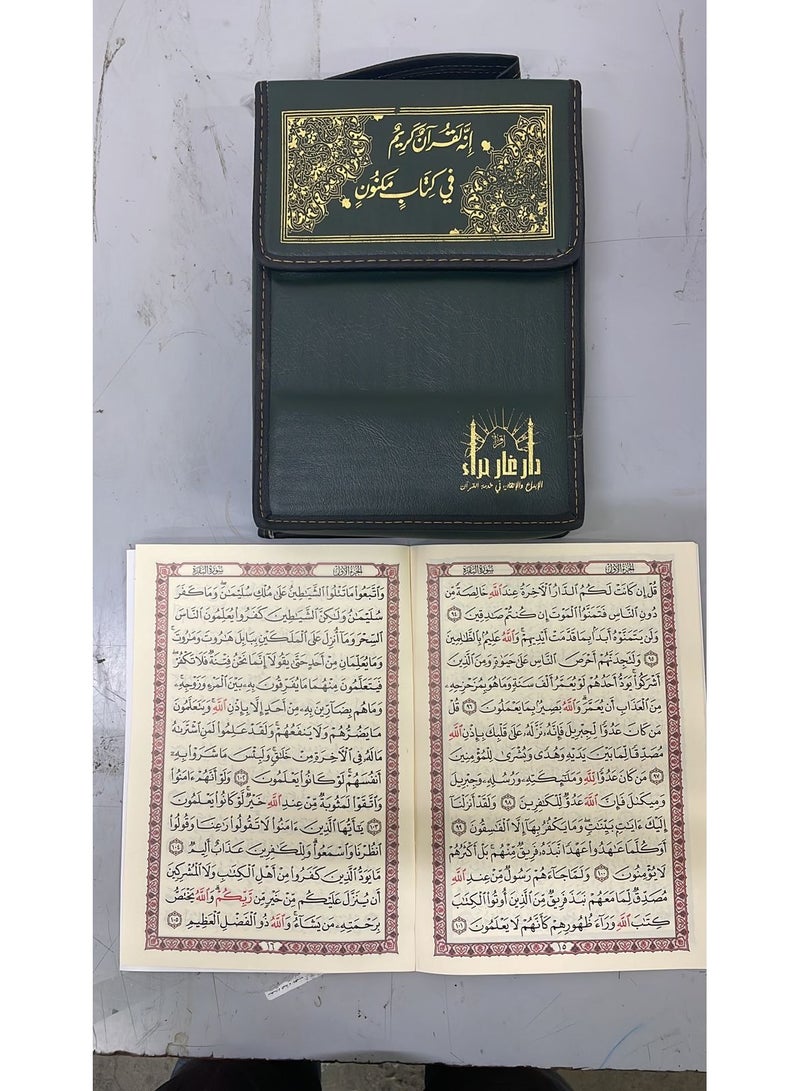 إِنَّهُ لَقُرْآنٌ كَرِيمٌ
فِي كِتَابٍ مَكْنُونٍ
اقرأ
دار غار حراء
الإبداع والإتقان في خدمة القرآن
الجزء الأول
سورة البقرة
قُلْ إِن كَانَتْ لَكُمُ ٱلدَّارُ ٱلْآخِرَةُ عِندَ ٱللَّهِ خَالِصَةً مِّن
دُونِ ٱلنَّاسِ فَتَمَنَّوُا۟ ٱلْمَوْتَ إِن كُنتُمْ صَٰدِقِينَ ٩٤
وَلَن يَتَمَنَّوْهُ أَبَدًۢا بِمَا قَدَّمَتْ أَيْدِيهِمْ ۗ وَٱللَّهُ عَلِيمٌۢ بِٱلظَّٰلِمِينَ
٩٥ وَلَتَجِدَنَّهُمْ أَحْرَصَ ٱلنَّاسِ عَلَىٰ حَيَوٰةٍ وَمِنَ ٱلَّذِينَ
أَشْرَكُوا۟ ۚ يَوَدُّ أَحَدُهُمْ لَوْ يُعَمَّرُ أَلْفَ سَنَةٍ وَمَا هُوَ بِمُزَحْزِحِهِۦ
مِنَ ٱلْعَذَابِ أَن يُعَمَّرَ ۗ وَٱللَّهُ بَصِيرٌۢ بِمَا يَعْمَلُونَ ٩٦ قُلْ
مَن كَانَ عَدُوًّا لِّجِبْرِيلَ فَإِنَّهُۥ نَزَّلَهُۥ عَلَىٰ قَلْبِكَ بِإِذْنِ ٱللَّهِ
مُصَدِّقًا لِّمَا بَيْنَ يَدَيْهِ وَهُدًى وَبُشْرَىٰ لِلْمُؤْمِنِينَ
٩٧ مَن كَانَ عَدُوًّا لِّلَّهِ وَمَلَٰٓئِكَتِهِۦ وَرُسُلِهِۦ وَجِبْرِيلَ
وَمِيكَىٰلَ فَإِنَّ ٱللَّهَ عَدُوٌّ لِّلْكَٰفِرِينَ ٩٨ وَلَقَدْ أَنزَلْنَآ
إِلَيْكَ ءَايَٰتٍۭ بَيِّنَٰتٍ ۖ وَمَا يَكْفُرُ بِهَآ إِلَّا ٱلْفَٰسِقُونَ ٩٩
أَوَكُلَّمَا عَٰهَدُوا۟ عَهْدًا نَّبَذَهُۥ فَرِيقٌ مِّنْهُم ۚ بَلْ أَكْثَرُهُمْ
لَا يُؤْمِنُونَ ١٠٠ وَلَمَّا جَآءَهُمْ رَسُولٌ مِّنْ عِندِ ٱللَّهِ
مُصَدِّقٌ لِّمَا مَعَهُمْ نَبَذَ فَرِيقٌ مِّنَ ٱلَّذِينَ أُوتُوا۟ ٱلْكِتَٰبَ
كِتَٰبَ ٱللَّهِ وَرَآءَ ظُهُورِهِمْ كَأَنَّهُمْ لَا يَعْلَمُونَ ١٠١
١٥
الجزء الأول
سورة البقرة
وَٱتَّبَعُوا۟ مَا تَتْلُوا۟ ٱلشَّيَٰطِينُ عَلَىٰ مُلْكِ سُلَيْمَٰنَ ۖ وَمَا كَفَرَ
سُلَيْمَٰنُ وَلَٰكِنَّ ٱلشَّيَٰطِينَ كَفَرُوا۟ يُعَلِّمُونَ ٱلنَّاسَ
ٱلسِّحْرَ وَمَآ أُنزِلَ عَلَى ٱلْمَلَكَيْنِ بِبَابِلَ هَٰرُوتَ وَمَٰرُوتَ ۚ
وَمَا يُعَلِّمَانِ مِنْ أَحَدٍ حَتَّىٰ يَقُولَآ إِنَّمَا نَحْنُ فِتْنَةٌ فَلَا تَكْفُرْ ۖ
فَيَتَعَلَّمُونَ مِنْهُمَا مَا يُفَرِّقُونَ بِهِۦ بَيْنَ ٱلْمَرْءِ وَزَوْجِهِۦ ۚ
وَمَا هُم بِضَآرِّينَ بِهِۦ مِنْ أَحَدٍ إِلَّا بِإِذْنِ ٱللَّهِ ۚ وَيَتَعَلَّمُونَ
مَا يَضُرُّهُمْ وَلَا يَنفَعُهُمْ ۚ وَلَقَدْ عَلِمُوا۟ لَمَنِ ٱشْتَرَىٰهُ
مَا لَهُۥ فِى ٱلْآخِرَةِ مِنْ خَلَٰقٍ ۚ وَلَبِئْسَ مَا شَرَوْا۟ بِهِۦٓ
أَنفُسَهُمْ ۚ لَوْ كَانُوا۟ يَعْلَمُونَ ١٠٢ وَلَوْ أَنَّهُمْ ءَامَنُوا۟
وَٱتَّقَوْا۟ لَمَثُوبَةٌ مِّنْ عِندِ ٱللَّهِ خَيْرٌ ۖ لَّوْ كَانُوا۟ يَعْلَمُونَ
١٠٣ يَٰٓأَيُّهَا ٱلَّذِينَ ءَامَنُوا۟ لَا تَقُولُوا۟ رَٰعِنَا وَقُولُوا۟
ٱنظُرْنَا وَٱسْمَعُوا۟ ۗ وَلِلْكَٰفِرِينَ عَذَابٌ أَلِيمٌ ١٠٤
مَّا يَوَدُّ ٱلَّذِينَ كَفَرُوا۟ مِنْ أَهْلِ ٱلْكِتَٰبِ وَلَا ٱلْمُشْرِكِينَ
أَن يُنَزَّلَ عَلَيْكُم مِّنْ خَيْرٍ مِّن رَّبِّكُمْ ۗ وَٱللَّهُ يَخْتَصُّ
بِرَحْمَتِهِۦ مَن يَشَآءُ ۚ وَٱللَّهُ ذُو ٱلْفَضْلِ ٱلْعَظِيمِ ١٠٥
١٦